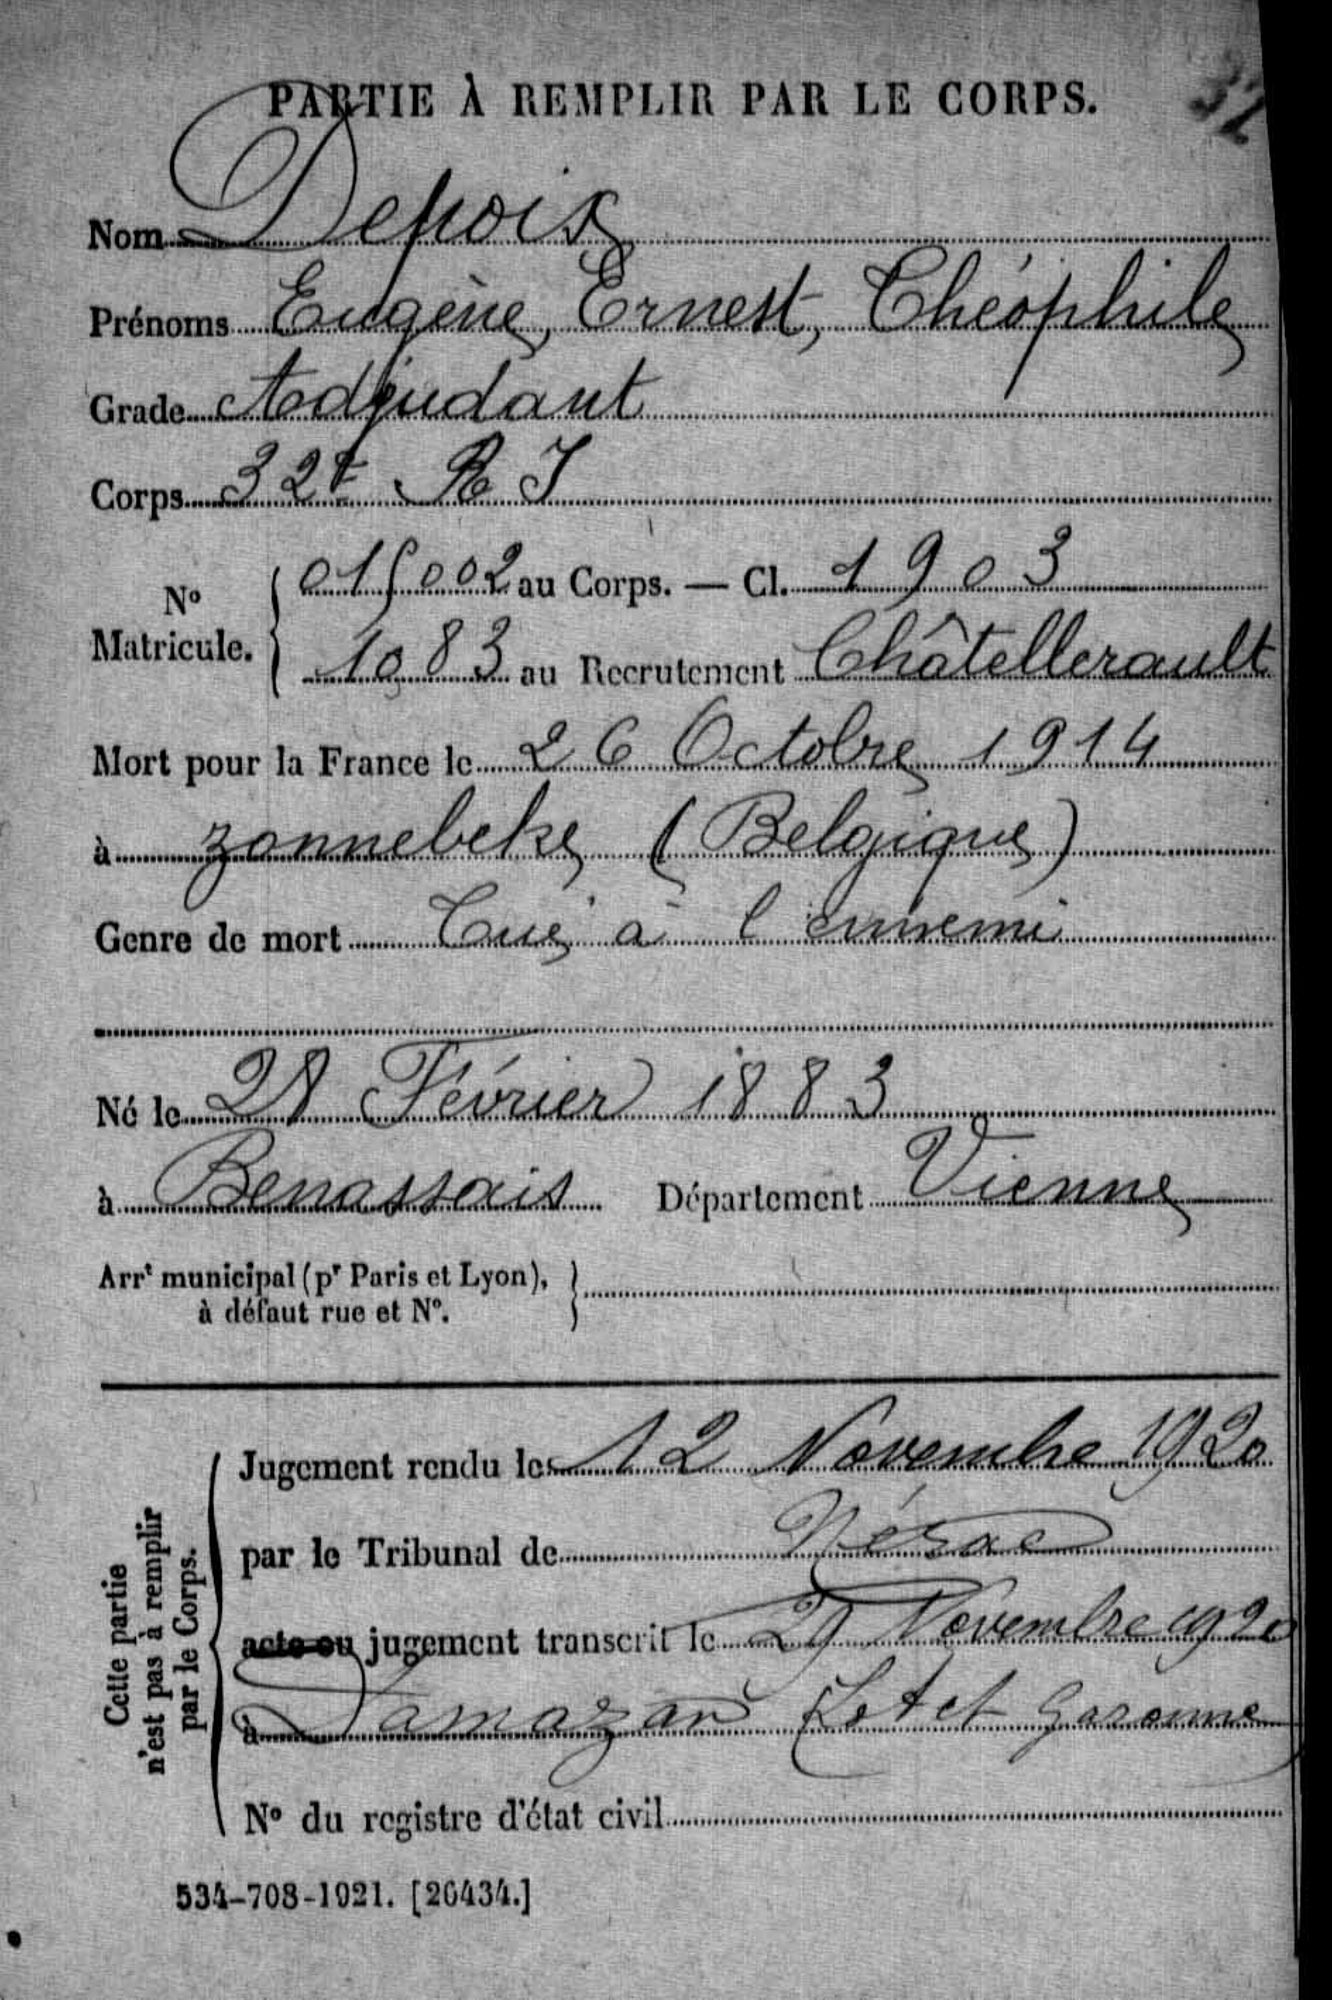 32
PARTIE À REMPLIR PAR LE CORPS.
Nom Depoix
Prénoms Eugène, Ernest, Théophile
Grade Adjudant
Corps 32e R I
No Matricule. { 015002 au Corps. — Cl. 1903
1083 au Recrutement Châtellerault
Mort pour la France le 26 Octobre 1914
à zonnebeke (Belgique)
Genre de mort Tué à l'ennemi
Né le 28 Février 1883
à Benassais Département Vienne
Arrt municipal (pr Paris et Lyon), }
à défaut rue et No.
Cette partie
n'est pas à remplir
par le Corps.
Jugement rendu le 12 Novembre 1920
par le Tribunal de Nérac
acte ou jugement transcrit le 29 Novembre 1920
à Damazan (Lot et Garonne
No du registre d'état civil
534-708-1921. [26434.]